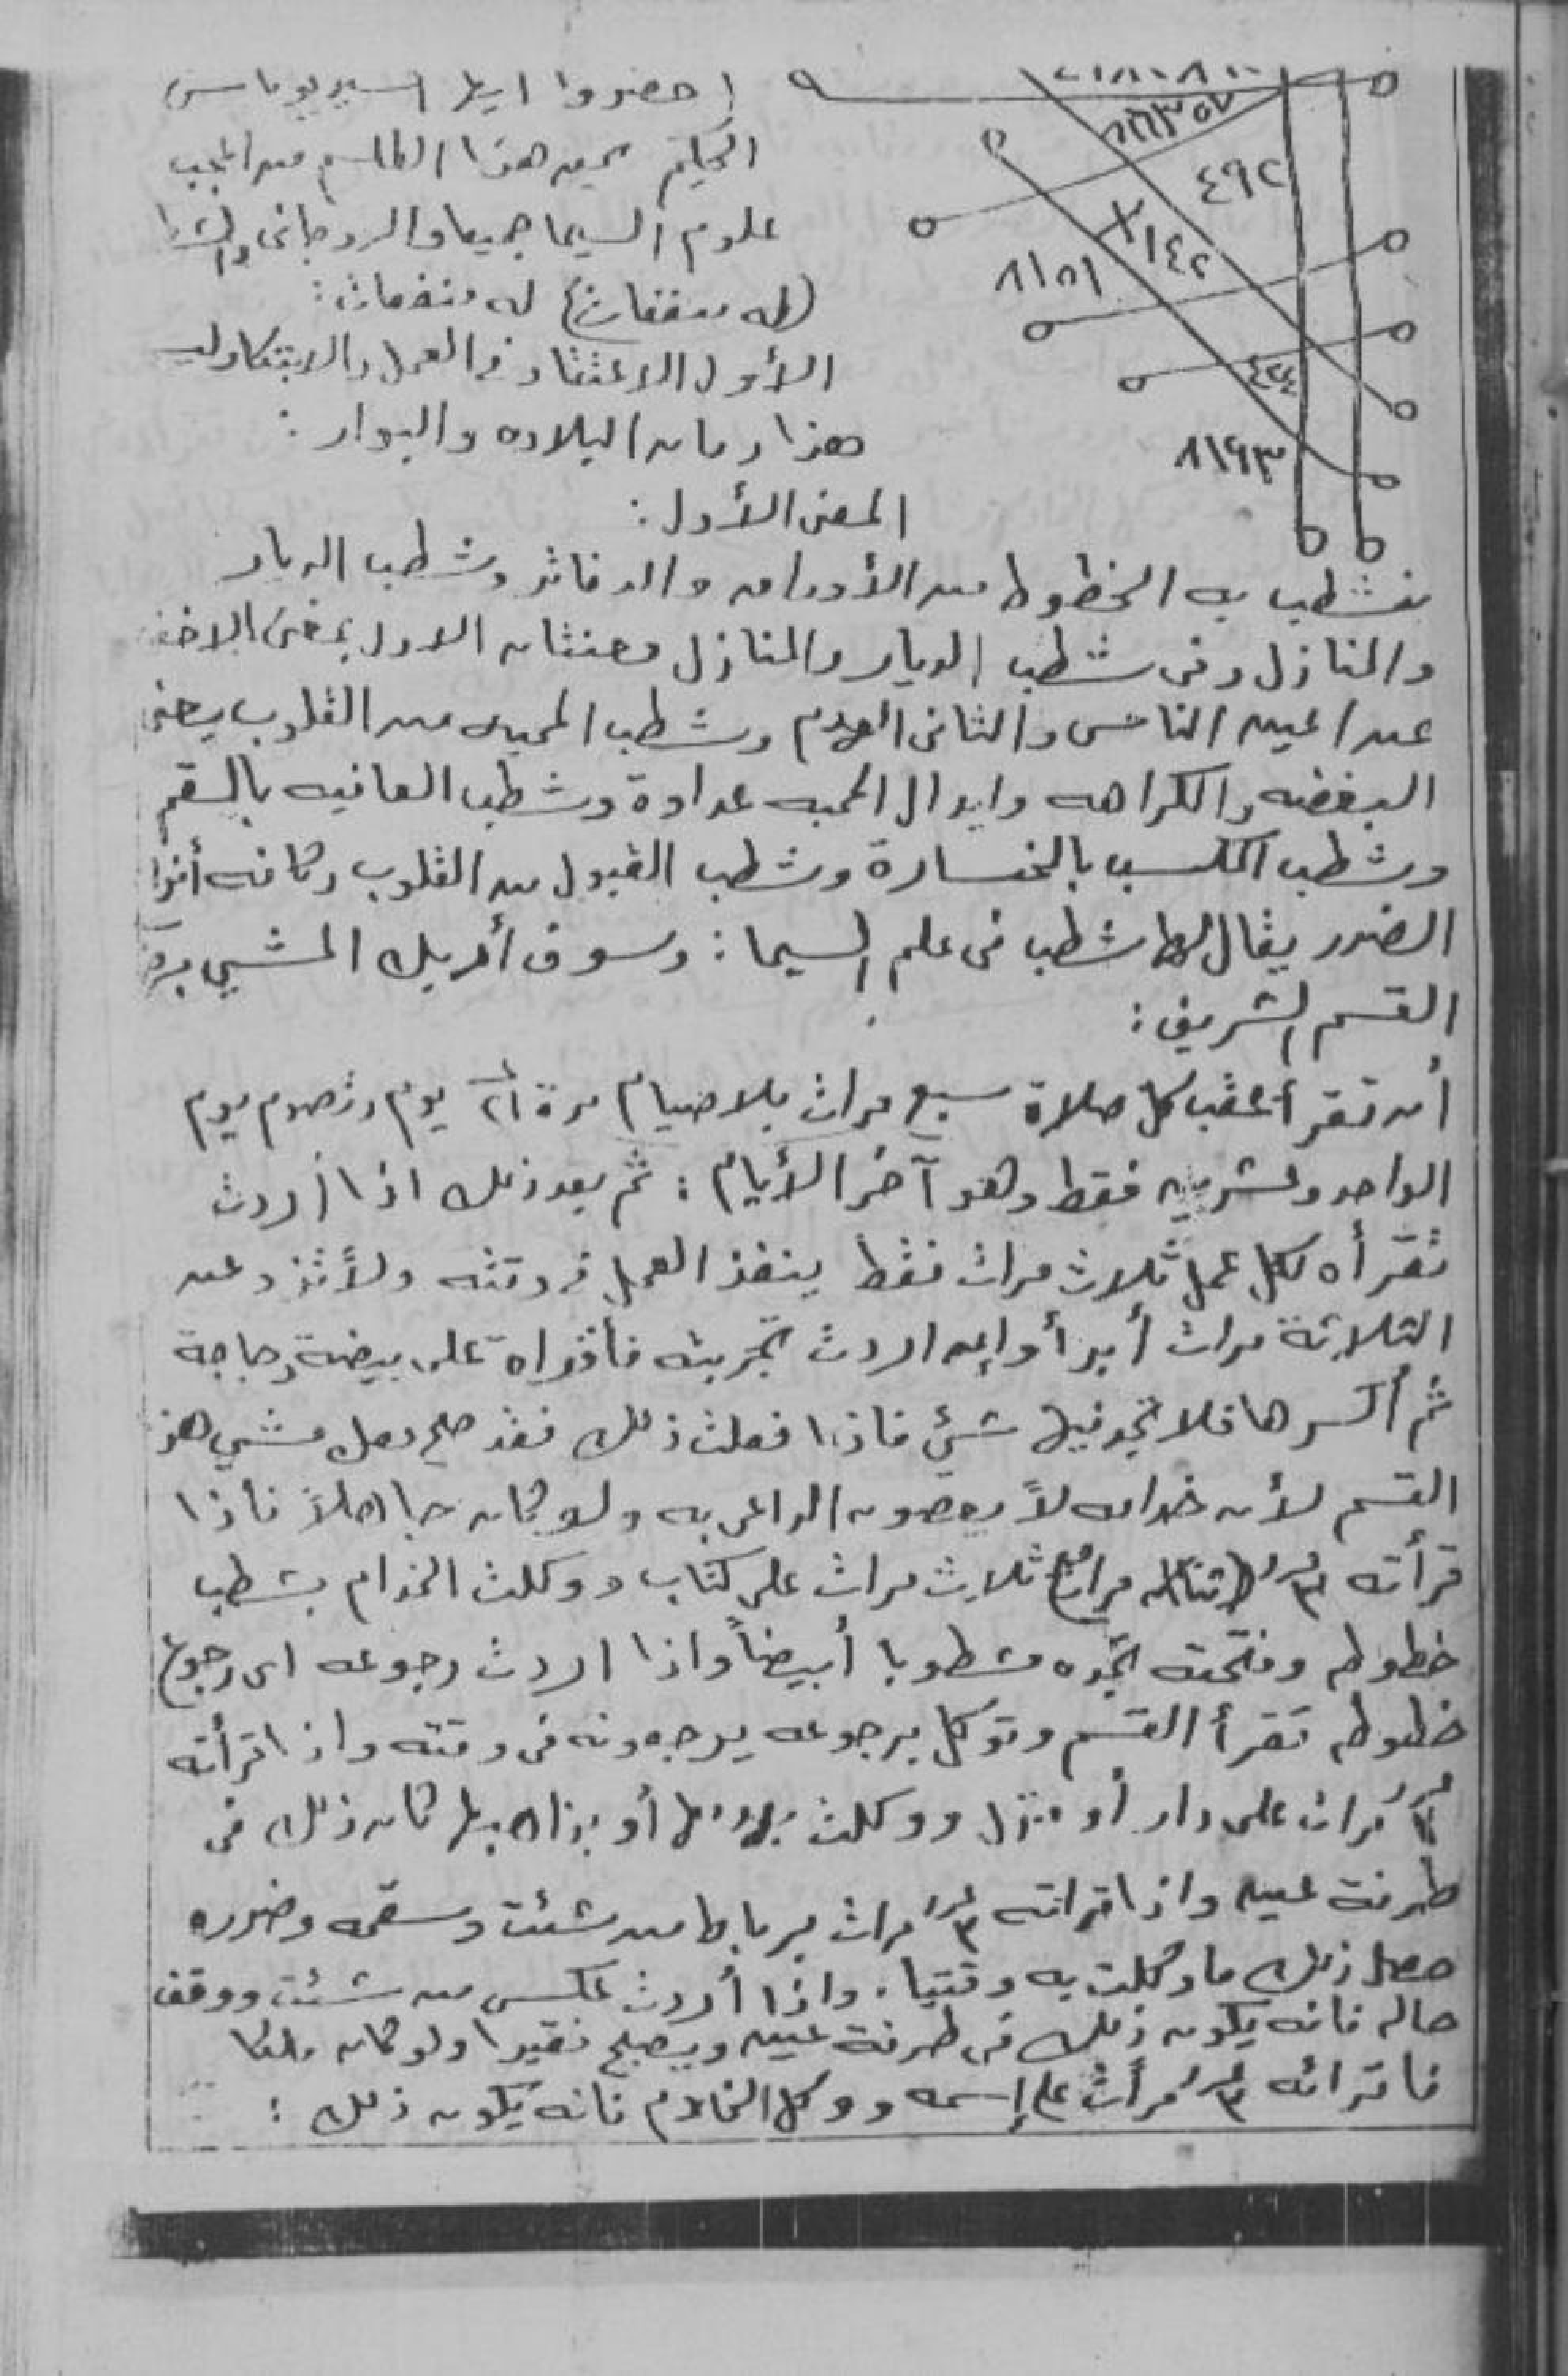 احضروا ايها السيد بوناس
الحكيم بحق هذا الطلسم من اعجب
علوم السيما جميعا والروحانى
(له منفعات) له منفعات:
الأول الاعتقاد فى العمل والابتكار
هذا رمان البلاده والبوار:
المعنى الأول:
نشطب به الخطوط من الأوراق والدفاتر وشطب الديار
والمنازل وفى شطب الديار والمنازل معنتان الاول بمعنى الاخفا
عن اعين الناس والثانى الهدم وشطب المحبه من القلوب يعنى
البغضه والكراهه وابدال المحبه عداوة وشطب العافيه بالسقم
وشطب المكسب بالخسارة وشطب القبول من القلوب وكافه أنوا
الضرر يقال لها شطب فى علم السيما: وسوف أدبك المشي
القسم الشريف:
أن تقرأ عقب كل صلاة سبع مرات بلا صيام مدة ٢١ يوم وتصوم يوم
الواحد وعشرين فقط وهو آخر الأيام: ثم بعد ذلك اذا أردت
تقرأه لكل عمل ثلاث مرات فقط ينفذ العمل فى وقته ولا تزد عن
الثلاثة مرات أبدأ وإن اردت تجربته فأقراه على بيضة دجاجة
ثم أكسرها فلا تجد فيها شئ فاذا فعلت ذلك فقد صح معك مشي هذ
القسم لأن خدامه لا يعصون الداعى به ولو كان جاهلاً فأذا
قرأته ٣ مرات ثلاث مرات على كتاب ووكلت الخدام بشطب
خطوطه وفتحته تجده مشطوبا أبيضاً واذا اردت رجوعه اى رجوع
خطوطه تقرأ القسم وتوكل برجوعه يرجعونه فى وقته واذا قرأته
٣ مرات على دار أو منزل ووكلت بهدمها أو بذهابها كان ذلك فى
طرفة عين واذا قراته ٣ مرات بربط من شئت وسقمه وضرره
حصل ذلك ما وكلت به وقتيا. واذا أردت عكس من شئت ووقف
حاله فانه يكون ذلك فى طرفة عين ويصبح فقيرا ولو كان ملكا
فاقرائه ٣ مرأت على إسمه ووكل الخدام فانه يكون ذلك:
٨٦٣٥٧
٤٩٢
١٤٢
٨١٥١
٤٢٤
٨١٩٣